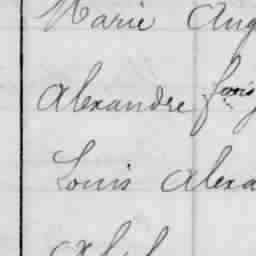 Marie Aug
Alexandre frois
Louis Alexa